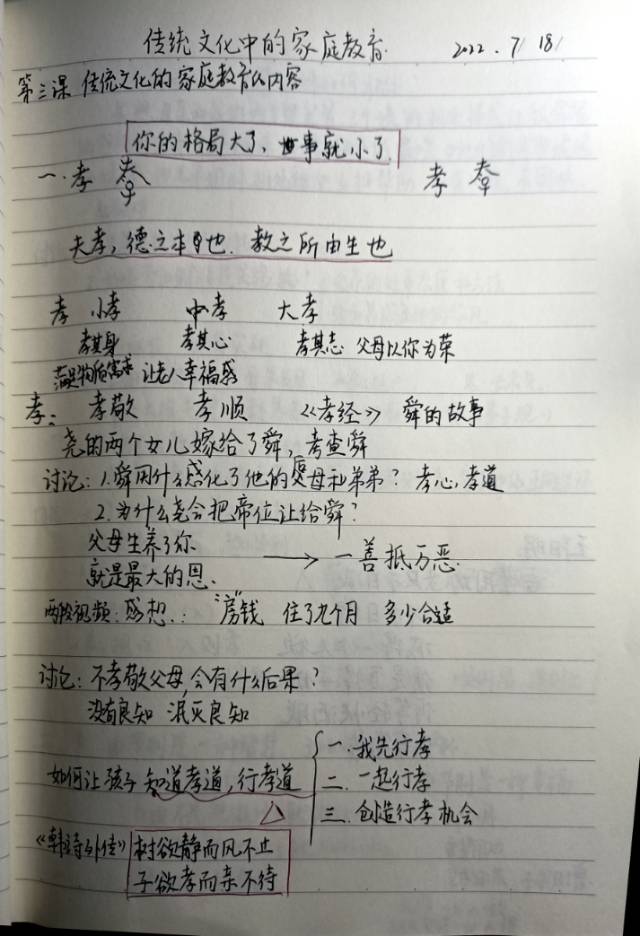 传统文化中的家庭教育 2022.7/18/
第三课 传统文化的家庭教育么内容
你的格局大了、世事就小了.
一.孝 孝 孝
夫孝,德之本也.教之所由生也
孝 小孝 中孝 大孝
孝其身 孝其心 孝其志 父母以你为荣
满足物质需求 让老人幸福感
孝: 孝敬 孝顺 《孝经》 舜的故事
尧的两个女儿嫁给了舜,考查舜
讨论:1.舜用什么感化了他的父母和弟弟? 孝心,孝道
2.为什么尧会把帝位让给舜?
父母生养了你 → 一善抵万恶.
就是最大的恩.
两段视频:感想.: “房”钱 住了九个月 多少合适
讨论:不孝敬父母,会有什么后果?
没有良知 泯灭良知
一.我先行孝
如何让孩子知道孝道,行孝道 二.一起行孝
三.创造行孝机会
《韩诗外传》 树欲静而风不止
子欲孝而亲不待